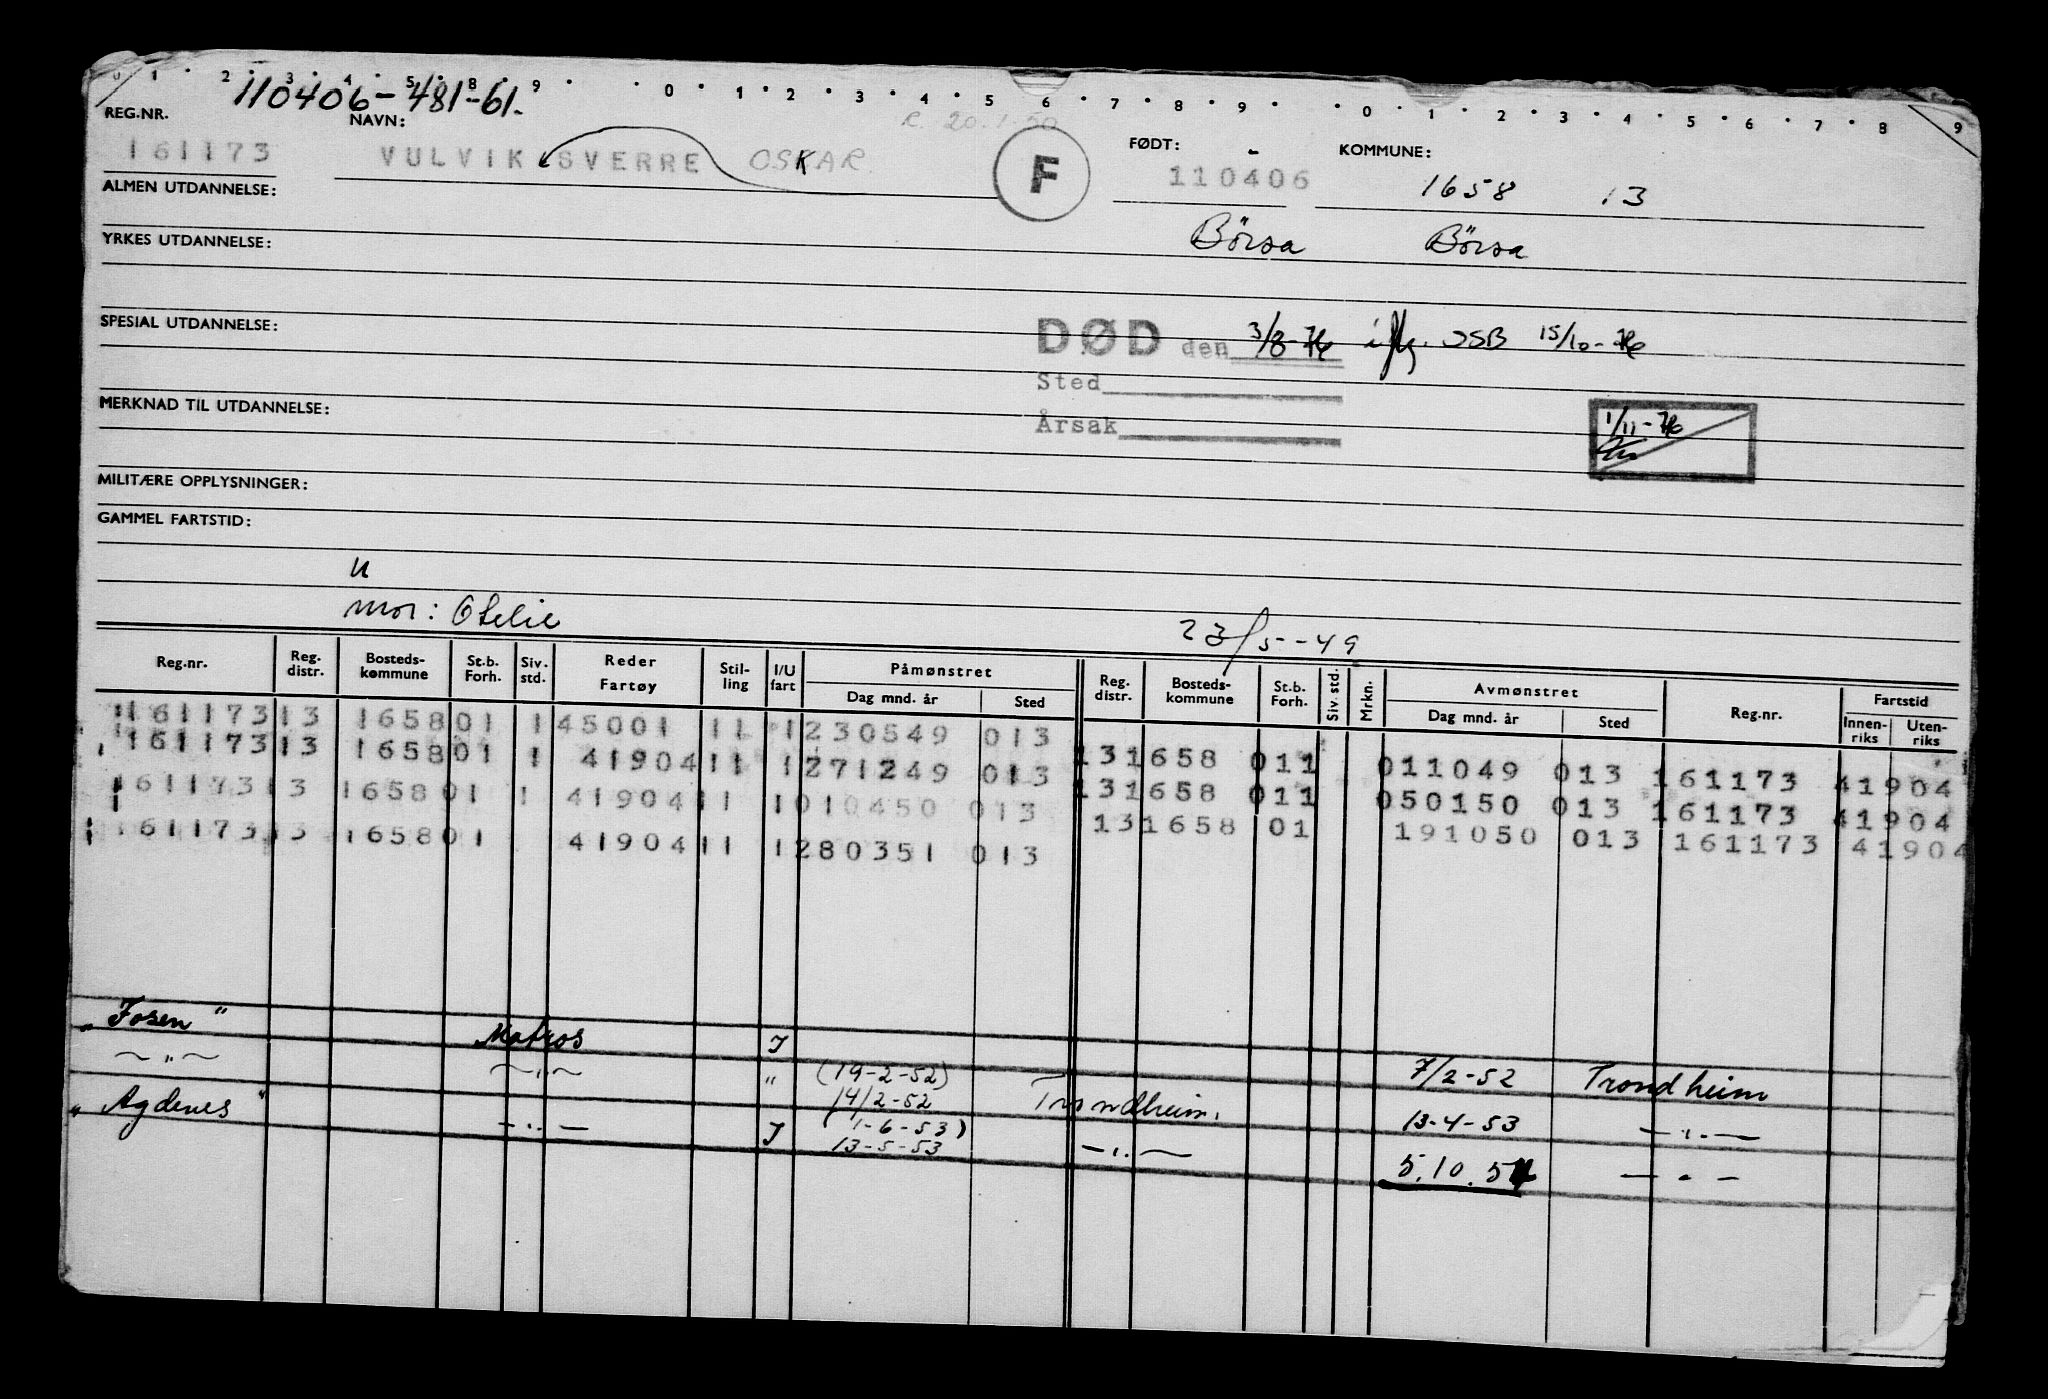 0 1 2 3 4 5 8 9 0 1 2 3 4 5 6 7 8 9 0 1 2 3 4 5 6 7 8 9
110406-481-61.
REG.NR. NAVN: FØDT: KOMMUNE:
161173 VULVIK SVERRE OSKAR. F 110406 1658 13
ALMEN UTDANNELSE:
Börsa Börsa
YRKES UTDANNELSE:
SPESIAL UTDANNELSE:
DØD den 3/8-76 iflg. JSB 15/10-76
Sted
MERKNAD TIL UTDANNELSE:
Årsak 1/11-76
MILITÆRE OPPLYSNINGER:
GAMMEL FARTSTID:
U
mor: Otelie 23/5--49
Reg.nr. Reg. distr. Bosteds-kommune St.b. Forh. Siv. std. Reder Fartøy Stil-ling I/U fart Påmønstret Dag mnd. år Sted Reg. distr. Bosteds-kommune St.b. Forh. Siv. std. Mrkn. Avmønstret Dag mnd. år Sted Reg.nr. Fartstid Innen-riks Uten-riks
161173 13 1658 01 1 45001 11 1 230549 013 13 1658 011 011049 013 161173 41904
161173 13 1658 01 1 41904 11 1 271249 013 13 1658 011 050150 013 161173 41904
161173 13 1658 01 1 41904 11 1 010450 013 13 1658 01 191050 013 161173 41904
161173 13 1658 01 41904 11 1 280351 013
"Fosen" Matros I 7/2-52 Trondheim
— " — — " — " (19-2-52) 14/2-52 Trondheim. 13-4-53 — " —
"Agdenes" — " — I (1-6-53) 13-5-53 — " — 5.10.54 — " —